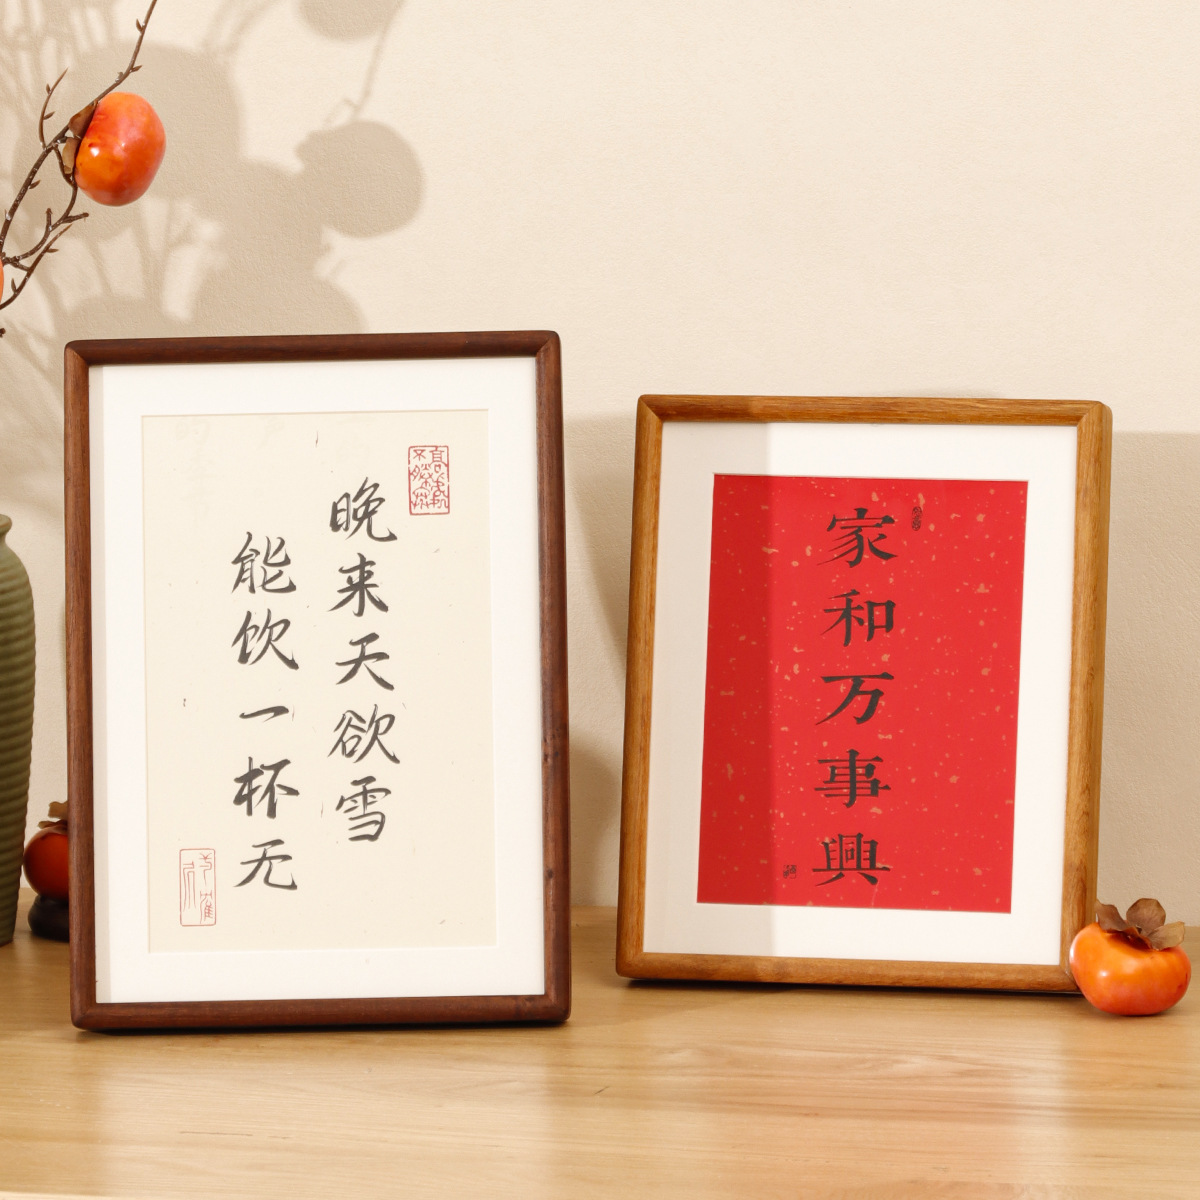 晚来天欲雪
能饮一杯无
家和万事興